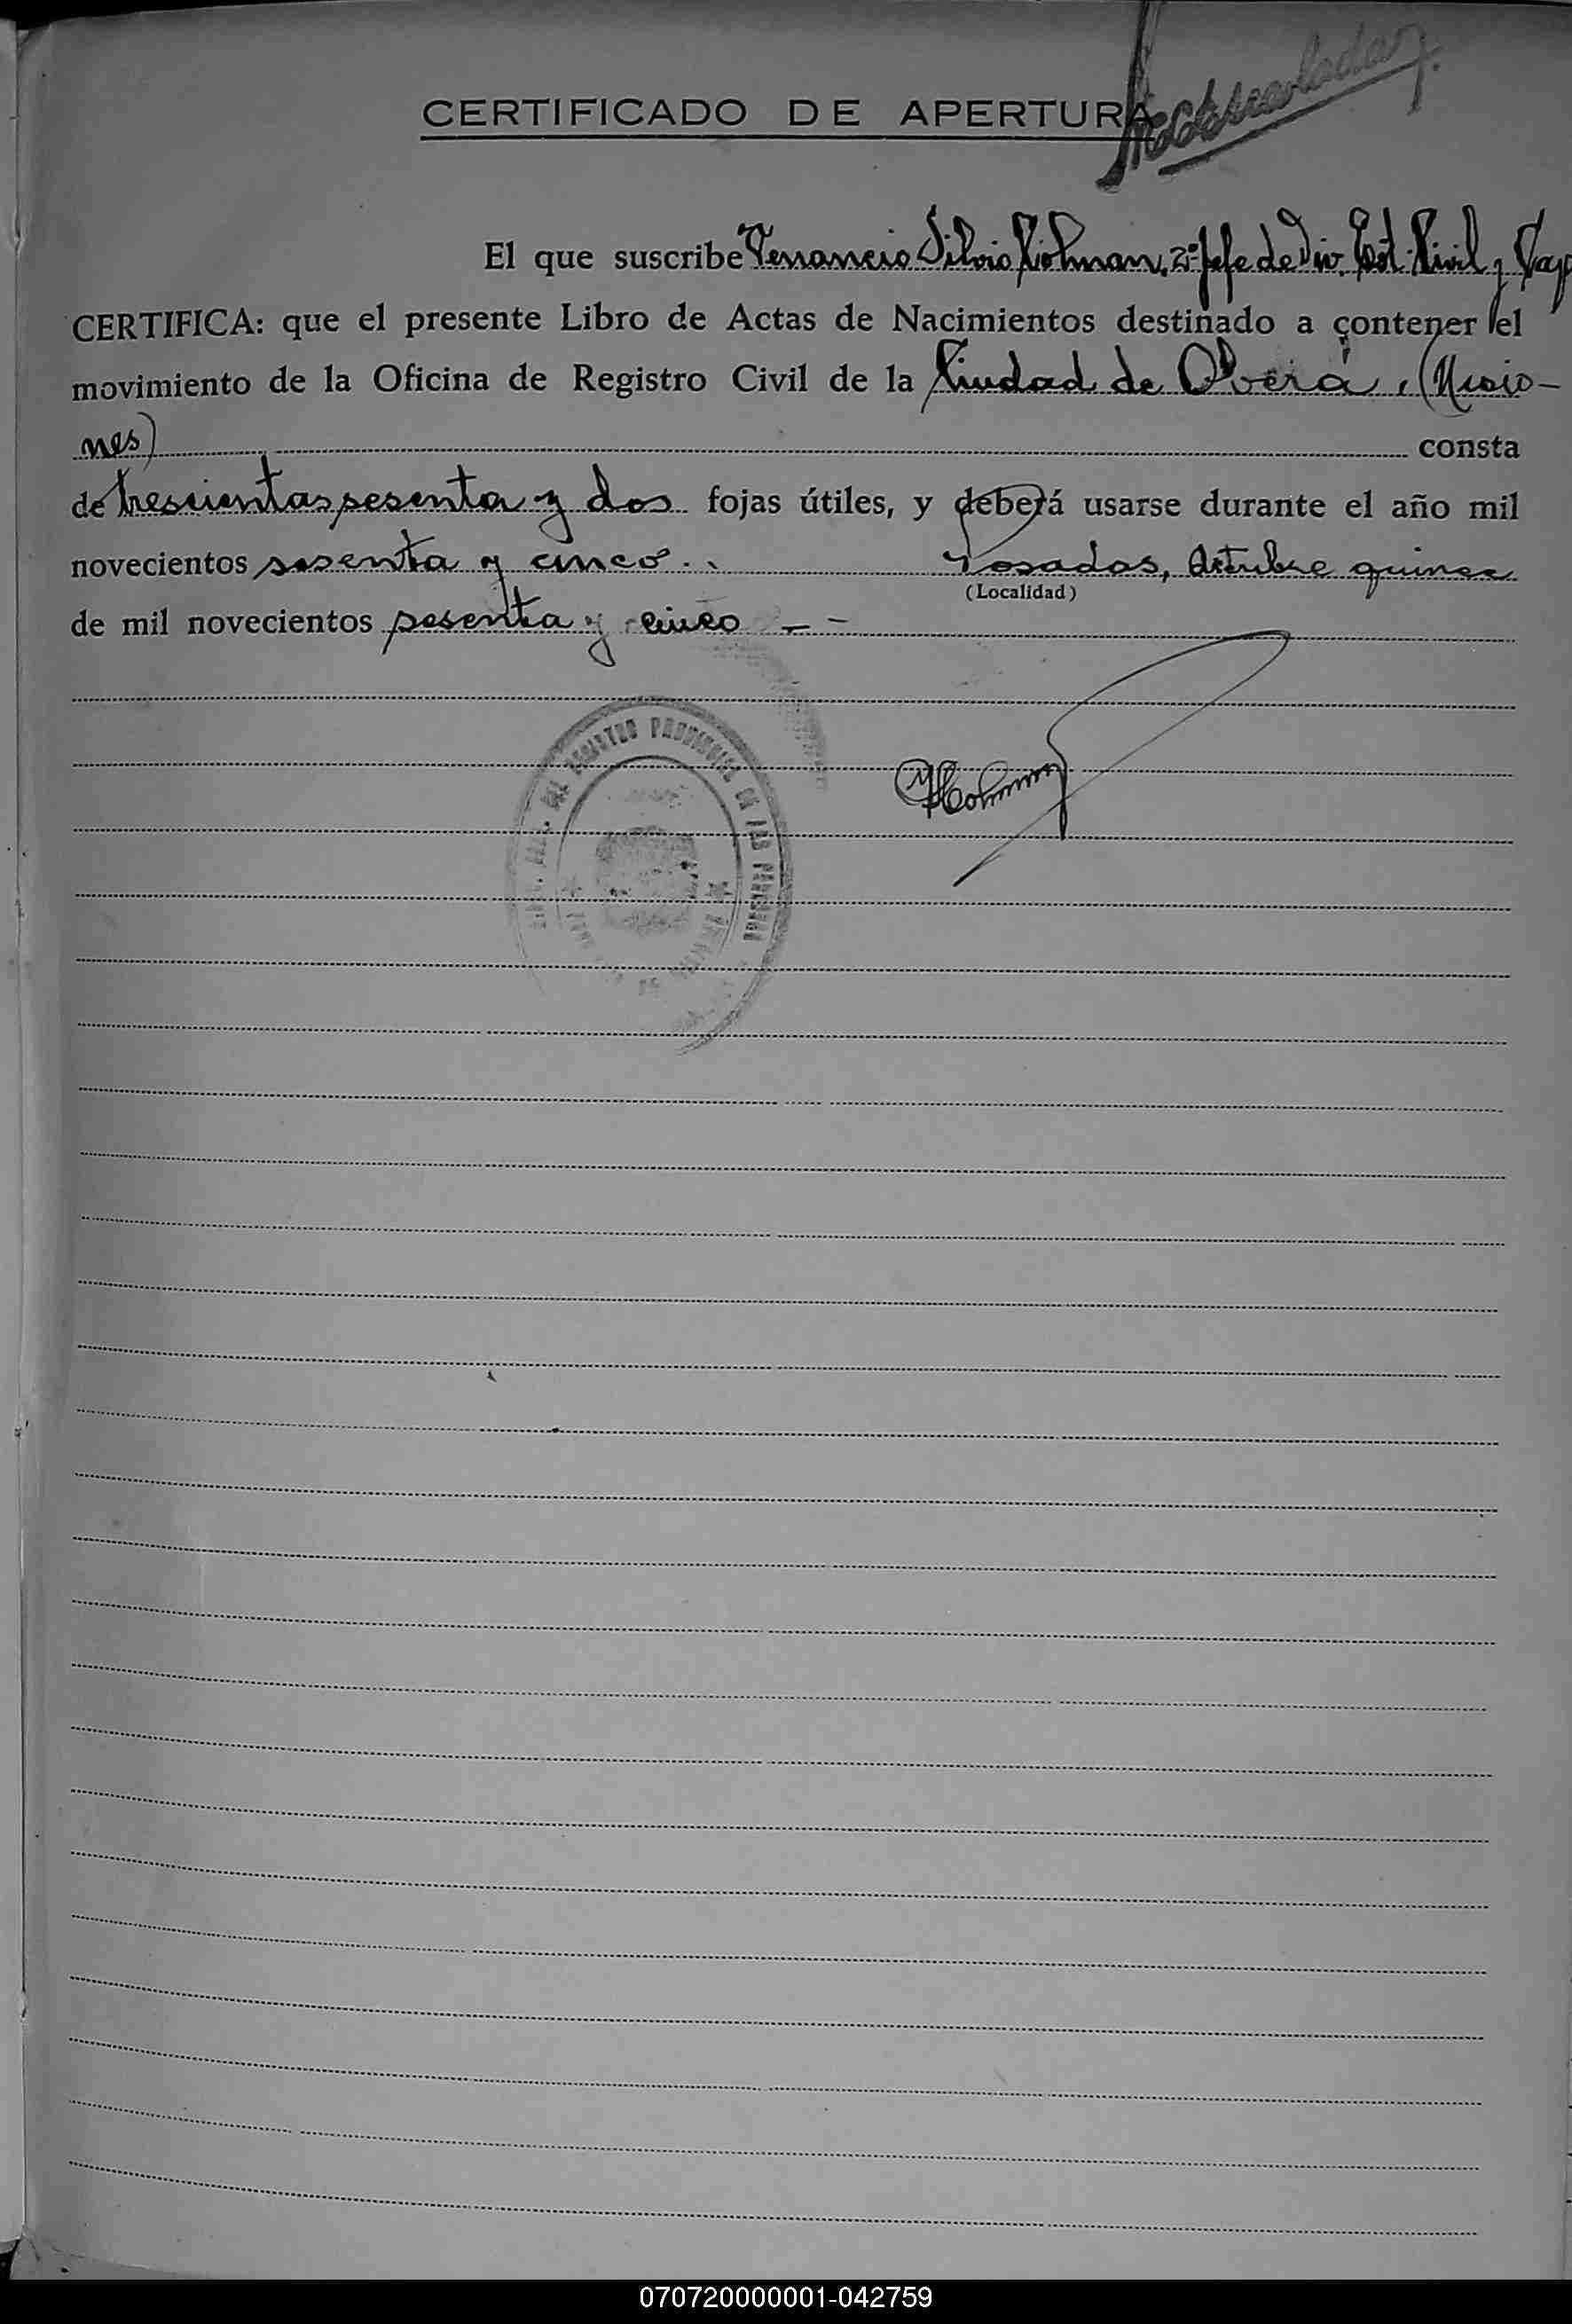 CERTIFICADO DE APERTURA
El que suscribe Venancio Silvio Kohman, 2º Jefe de Div. Est. Civil y Cap
CERTIFICA: que el presente Libro de Actas de Nacimientos destinado a contener el
movimiento de la Oficina de Registro Civil de la Ciudad de Oberá, (Misio-
nes) consta
de trescientas sesenta y dos fojas útiles, y deberá usarse durante el año mil
novecientos sesenta y cinco. Posadas, Octubre quince
(Localidad)
de mil novecientos sesenta y cinco --
DEL REGISTRO PROVINCIAL DE LAS PERSONAS
070720000001-042759